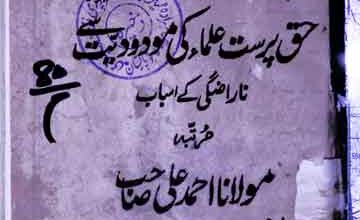 حق پرست علماء کی مودودیت سے
ناراضگی کے اسباب
مرتبہ
مولانا احمد علی صاحب